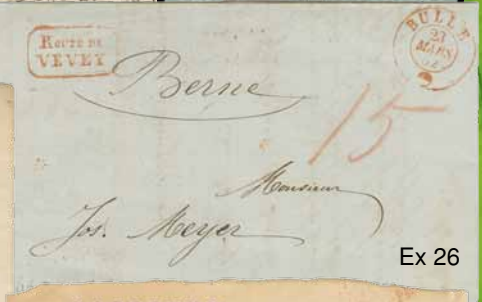 Route de
VEVEY
BULLE
23
MARS
Berne
15
Monsieur
Jos. Meyer
Ex 26